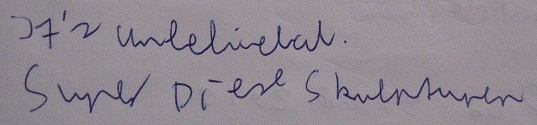 It's unbeliebal.
Super Diese Skulpturen